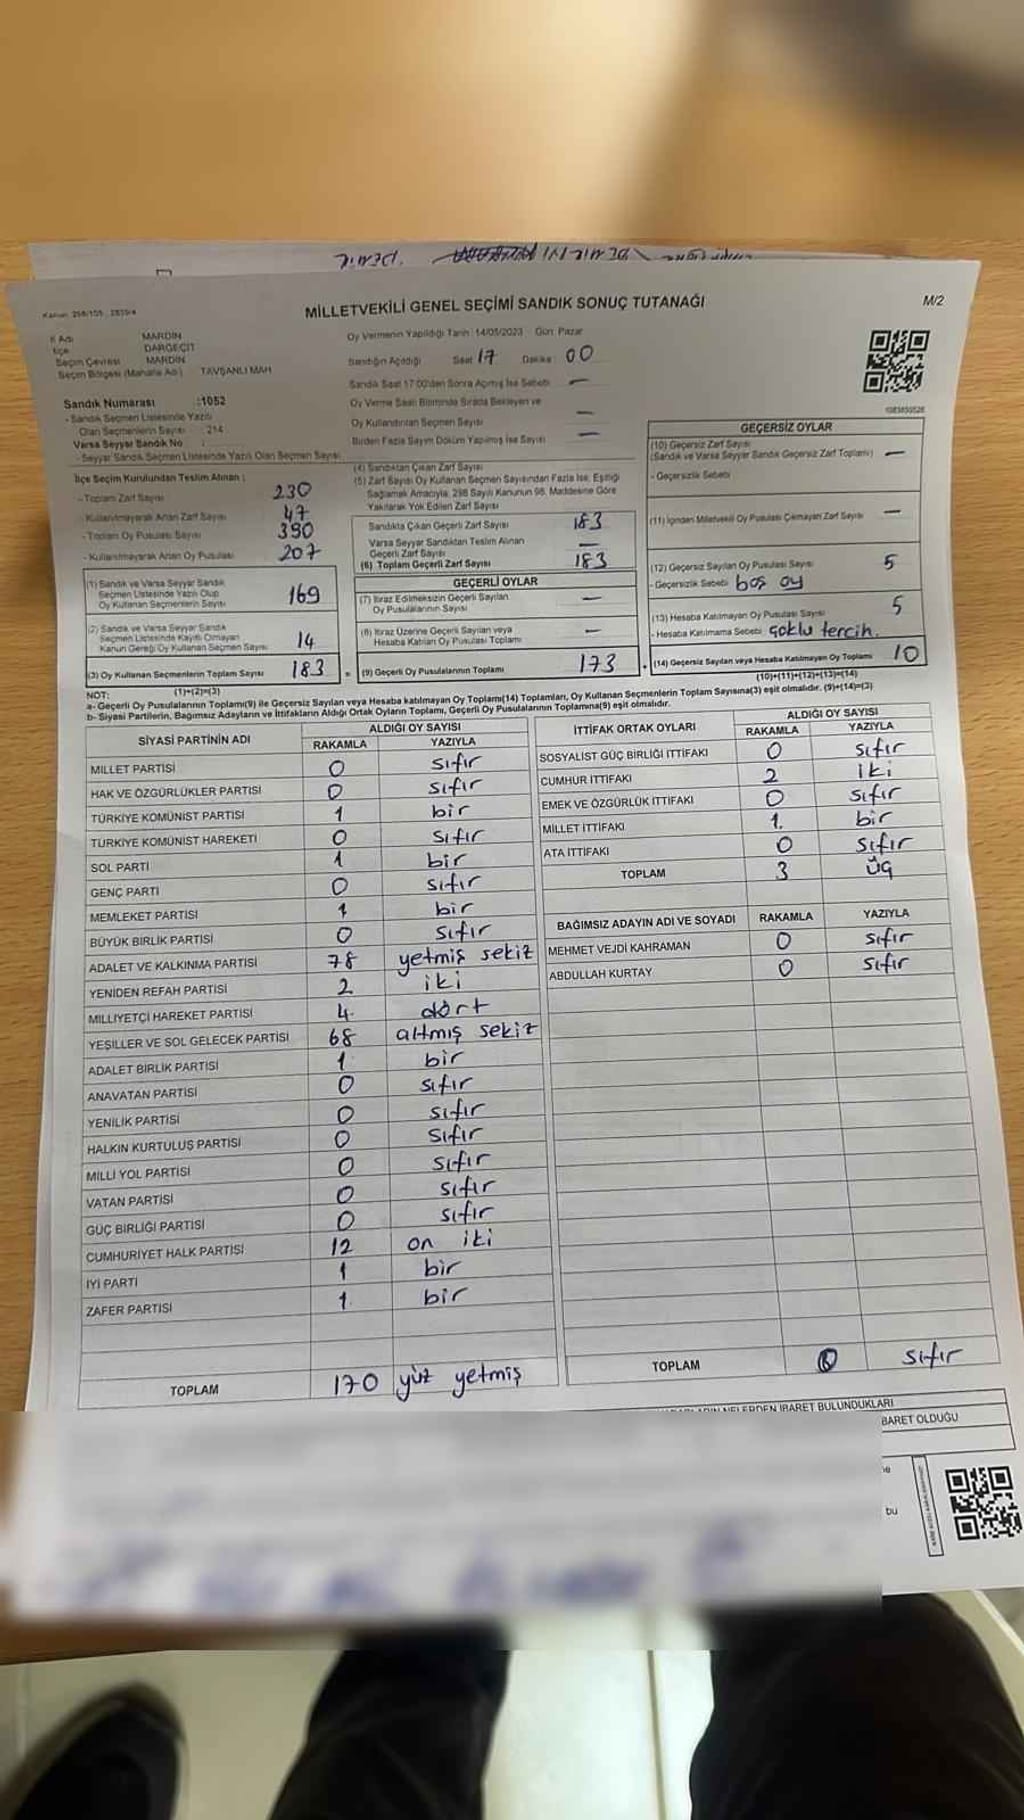 MİLLETVEKİLİ GENEL SEÇİMİ SANDIK SONUÇ TUTANAĞI
M/2
İl Adı MARDİN
İlçe DARGEÇİT
Seçim Çevresi MARDİN
Seçim Bölgesi (Mahalle Adı) TAVŞANLI MAH
Sandık Numarası :1052
- Sandık Seçmen Listesinde Yazılı
Olan Seçmenlerin Sayısı : 214
Varsa Seyyar Sandık No :
- Seyyar Sandık Seçmen Listesinde Yazılı Olan Seçmen Sayısı
Oy Vermenin Yapıldığı Tarih: 14/05/2023 Gün: Pazar
Sandığın Açıldığı Saat 17 Dakika: 00
Sandık Saat 17:00'den Sonra Açılmış İse Sebebi —
Oy Verme Saati Bitiminde Sırada Bekleyen ve
Oy Kullandırılan Seçmen Sayısı —
Birden Fazla Sayım Döküm Yapılmış İse Sayısı —
İlçe Seçim Kurulundan Teslim Alınan :
- Toplam Zarf Sayısı 230
- Kullanılmayarak Artan Zarf Sayısı 47
- Toplam Oy Pusulası Sayısı 390
- Kullanılmayarak Artan Oy Pusulası 207
(1) Sandık ve Varsa Seyyar Sandık
Seçmen Listesinde Yazılı Olup
Oy Kullanan Seçmenlerin Sayısı 169
(2) Sandık ve Varsa Seyyar Sandık
Seçmen Listesinde Kayıtlı Olmayan
Kanun Gereği Oy Kullanan Seçmen Sayısı 14
(3) Oy Kullanan Seçmenlerin Toplam Sayısı 183
(1)+(2)=(3)
(4) Sandıktan Çıkan Zarf Sayısı
(5) Zarf Sayısı Oy Kullanan Seçmen Sayısından Fazla İse, Eşitliği
Sağlamak Amacıyla, 298 Sayılı Kanunun 98. Maddesine Göre
Yakılarak Yok Edilen Zarf Sayısı
Sandıkta Çıkan Geçerli Zarf Sayısı 183
Varsa Seyyar Sandıktan Teslim Alınan
Geçerli Zarf Sayısı —
(6) Toplam Geçerli Zarf Sayısı 183
GEÇERLİ OYLAR
(7) İtiraz Edilmeksizin Geçerli Sayılan
Oy Pusulalarının Sayısı —
(8) İtiraz Üzerine Geçerli Sayılan veya
Hesaba Katılan Oy Pusulası Toplamı —
(9) Geçerli Oy Pusulalarının Toplamı 173
GEÇERSİZ OYLAR
(10) Geçersiz Zarf Sayısı
(Sandık ve Varsa Seyyar Sandık Geçersiz Zarf Toplamı) —
- Geçersizlik Sebebi
(11) İçinden Milletvekili Oy Pusulası Çıkmayan Zarf Sayısı —
(12) Geçersiz Sayılan Oy Pusulası Sayısı 5
- Geçersizlik Sebebi boş oy
(13) Hesaba Katılmayan Oy Pusulası Sayısı 5
- Hesaba Katılmama Sebebi çoklu tercih.
(14) Geçersiz Sayılan veya Hesaba Katılmayan Oy Toplamı 10
(10)+(11)+(12)+(13)=(14)
NOT:
a- Geçerli Oy Pusulalarının Toplamı(9) ile Geçersiz Sayılan veya Hesaba katılmayan Oy Toplamı(14) Toplamları, Oy Kullanan Seçmenlerin Toplam Sayısına(3) eşit olmalıdır. (9)+(14)=(3)
b- Siyasi Partilerin, Bağımsız Adayların ve İttifakların Aldığı Ortak Oyların Toplamı, Geçerli Oy Pusulalarının Toplamına(9) eşit olmalıdır.
SİYASİ PARTİNİN ADI
ALDIĞI OY SAYISI
RAKAMLA YAZIYLA
MİLLET PARTİSİ 0 sıfır
HAK VE ÖZGÜRLÜKLER PARTİSİ 0 sıfır
TÜRKİYE KOMÜNİST PARTİSİ 1 bir
TÜRKİYE KOMÜNİST HAREKETİ 0 sıfır
SOL PARTİ 1 bir
GENÇ PARTİ 0 sıfır
MEMLEKET PARTİSİ 1 bir
BÜYÜK BİRLİK PARTİSİ 0 sıfır
ADALET VE KALKINMA PARTİSİ 78 yetmiş sekiz
YENİDEN REFAH PARTİSİ 2 iki
MİLLİYETÇİ HAREKET PARTİSİ 4. dört
YEŞİLLER VE SOL GELECEK PARTİSİ 68 altmış sekiz
ADALET BİRLİK PARTİSİ 1 bir
ANAVATAN PARTİSİ 0 sıfır
YENİLİK PARTİSİ 0 sıfır
HALKIN KURTULUŞ PARTİSİ 0 sıfır
MİLLİ YOL PARTİSİ 0 sıfır
VATAN PARTİSİ 0 sıfır
GÜÇ BİRLİĞİ PARTİSİ 0 sıfır
CUMHURİYET HALK PARTİSİ 12 on iki
İYİ PARTİ 1 bir
ZAFER PARTİSİ 1. bir
TOPLAM 170 yüz yetmiş
İTTİFAK ORTAK OYLARI
ALDIĞI OY SAYISI
RAKAMLA YAZIYLA
SOSYALİST GÜÇ BİRLİĞİ İTTİFAKI 0 sıfır
CUMHUR İTTİFAKI 2 iki
EMEK VE ÖZGÜRLÜK İTTİFAKI 0 sıfır
MİLLET İTTİFAKI 1. bir
ATA İTTİFAKI 0 sıfır
TOPLAM 3 üç
BAĞIMSIZ ADAYIN ADI VE SOYADI RAKAMLA YAZIYLA
MEHMET VEJDİ KAHRAMAN 0 sıfır
ABDULLAH KURTAY 0 sıfır
TOPLAM 0 sıfır
NELERDEN İBARET BULUNDUKLARI
BARET OLDUĞU
bu